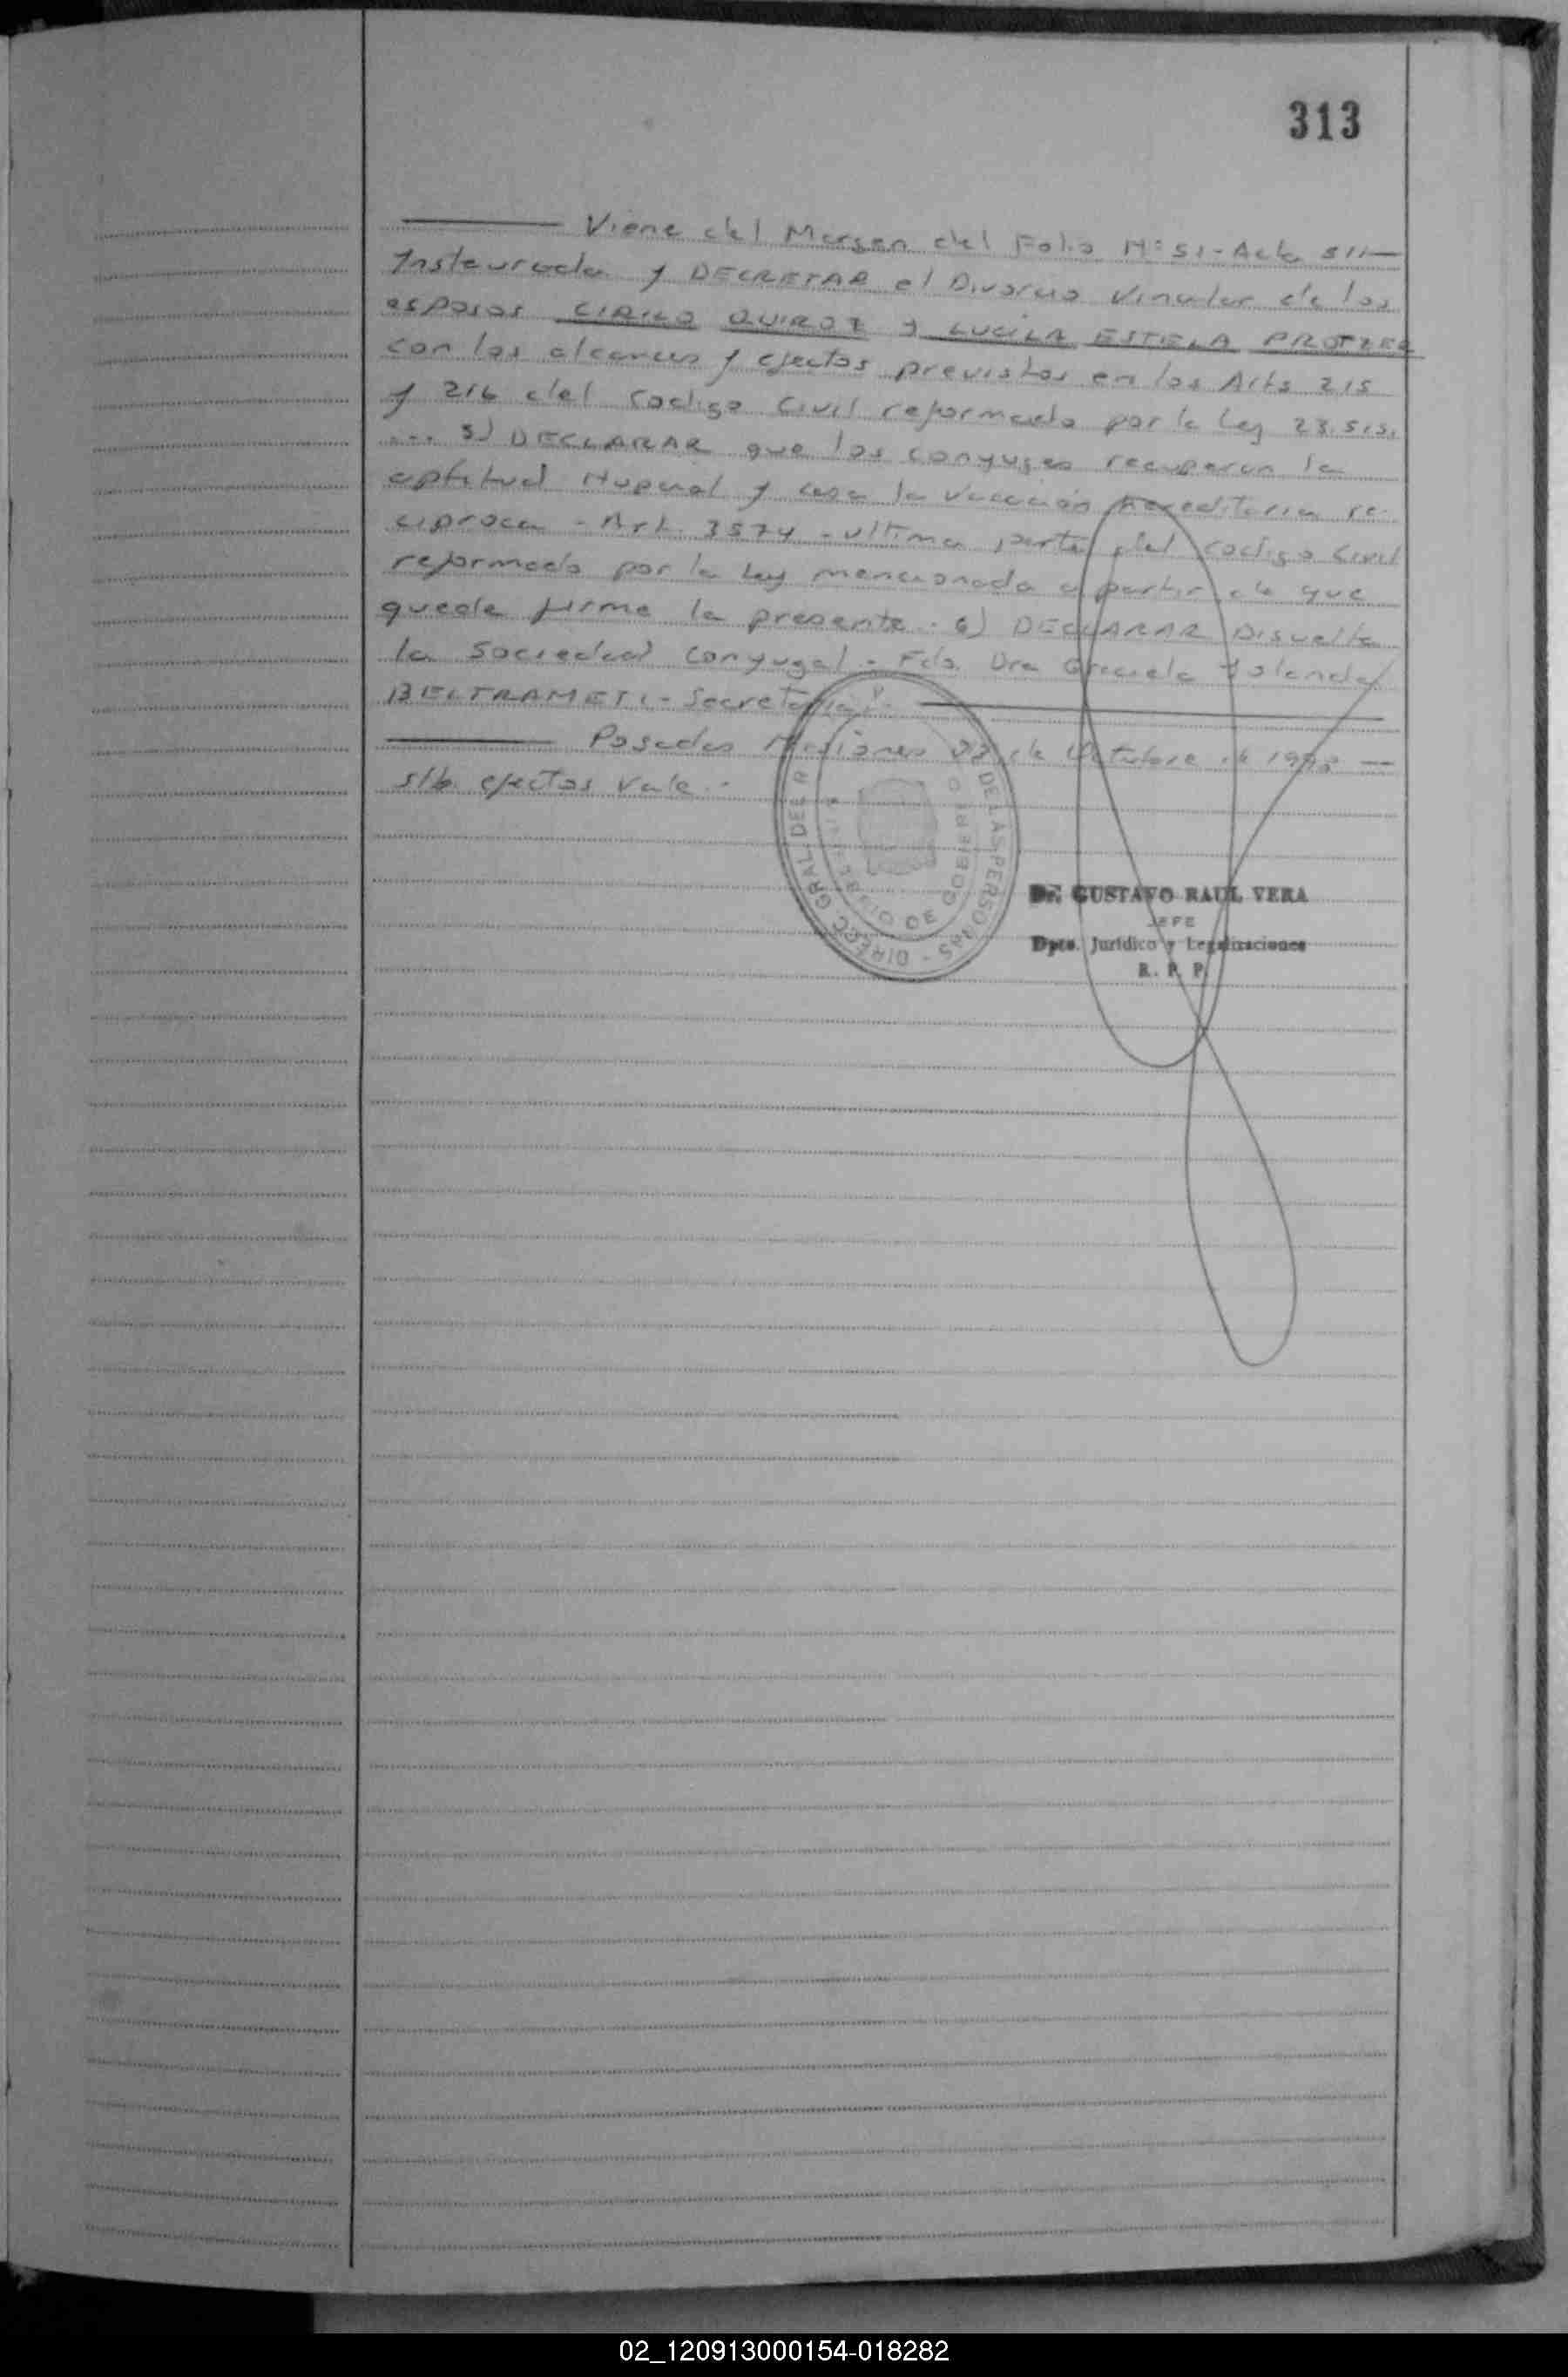 313
Viene del Margen del Folio Nº 51 - Acta 511
Instaurada y DECRETAR el Divorcio Vincular de los
esposos CIRILO QUIROZ y LUCILA ESTELA PROTZEK
con los alcances y efectos previstos en los Arts 215
y 216 del codigo Civil reformado por la Ley 23.515.
... 5) DECLARAR que los conyuges recuperan la
aptitud Nupcial y cesa la Vocación hereditaria re-
ciproca - Art. 3574 - ultima parte del codigo Civil
reformado por la Ley mencionada a partir de que
quede firme la presente. 6) DECLARAR Disuelta
la Sociedad conyugal - Fdo. Dra Graciela Yolanda
BELTRAMETI - Secretaria".
Posadas Misiones de Octubre de
s/b. efectos vale.-
DIRECC GRAL DEL R DE LAS PERSONAS -
MINISTERIO DE GOBIERNO
Dr. GUSTAVO RAUL VERA
JEFE
Dpto. Jurídico y Legalizaciones
R. P. P.
02_120913000154-018282